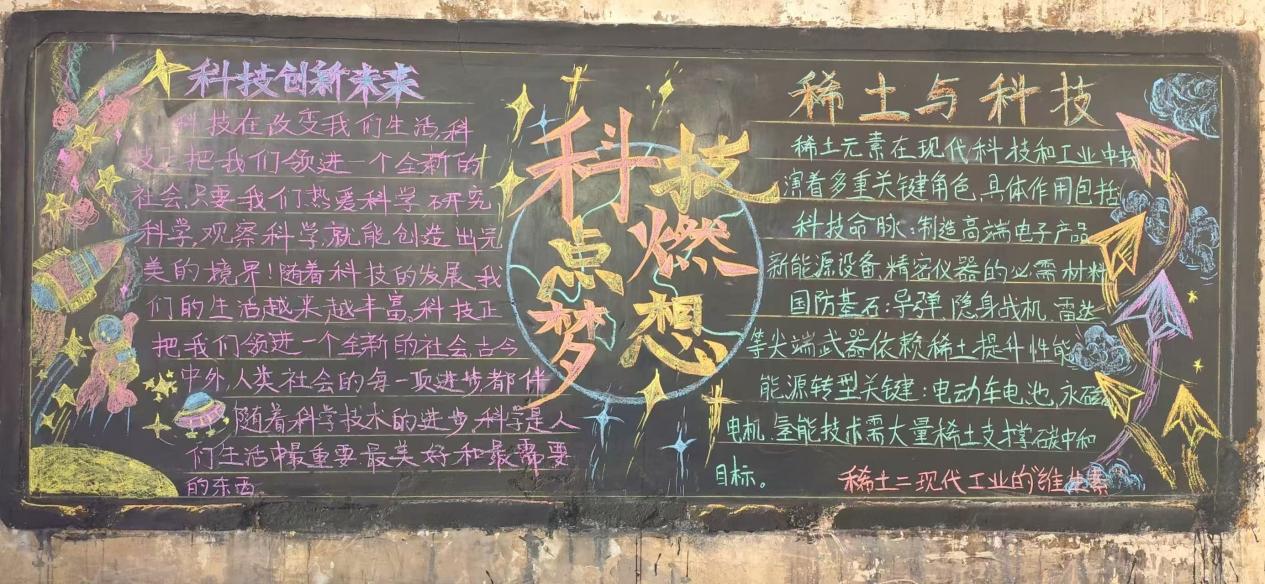 科技创新未来
科技在改变我们生活,科
技正把我们领进一个全新的
社会,只要我们热爱科学研究
科学,观察科学,就能创造出完
美的境界!随着科技的发展,我
们的生活越来越丰富,科技正
把我们领进一个全新的社会,古今
中外,人类社会的每一项进步都伴
随着科学技术的进步,科学是人
们生活中最重要最美好和最需要
的东西。
科技
点燃
梦想
稀土与科技
稀土元素在现代科技和工业中扮
演着多重关键角色,具体作用包括
科技命脉:制造高端电子产品
新能源设备,精密仪器的必需材料
国防基石:导弹,隐身战机,雷达
等尖端武器依赖稀土提升性能
能源转型关键:电动车电池,永磁
电机,氢能技术需大量稀土支撑碳中和
目标。
稀土=现代工业的"维生素